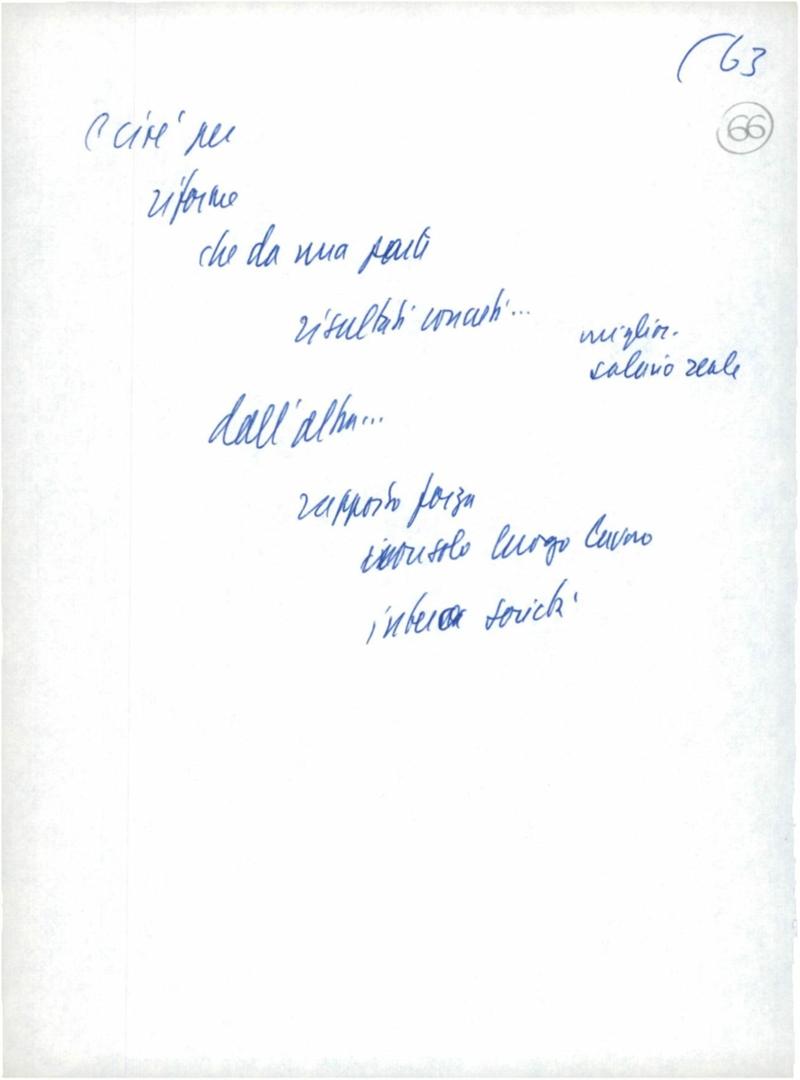 (63
66
e cioè per
riforme
che da una parte
risultati concreti...
miglior.
salario reale
dall'altra...
rapporto forza
non solo luogo lavoro
intera società